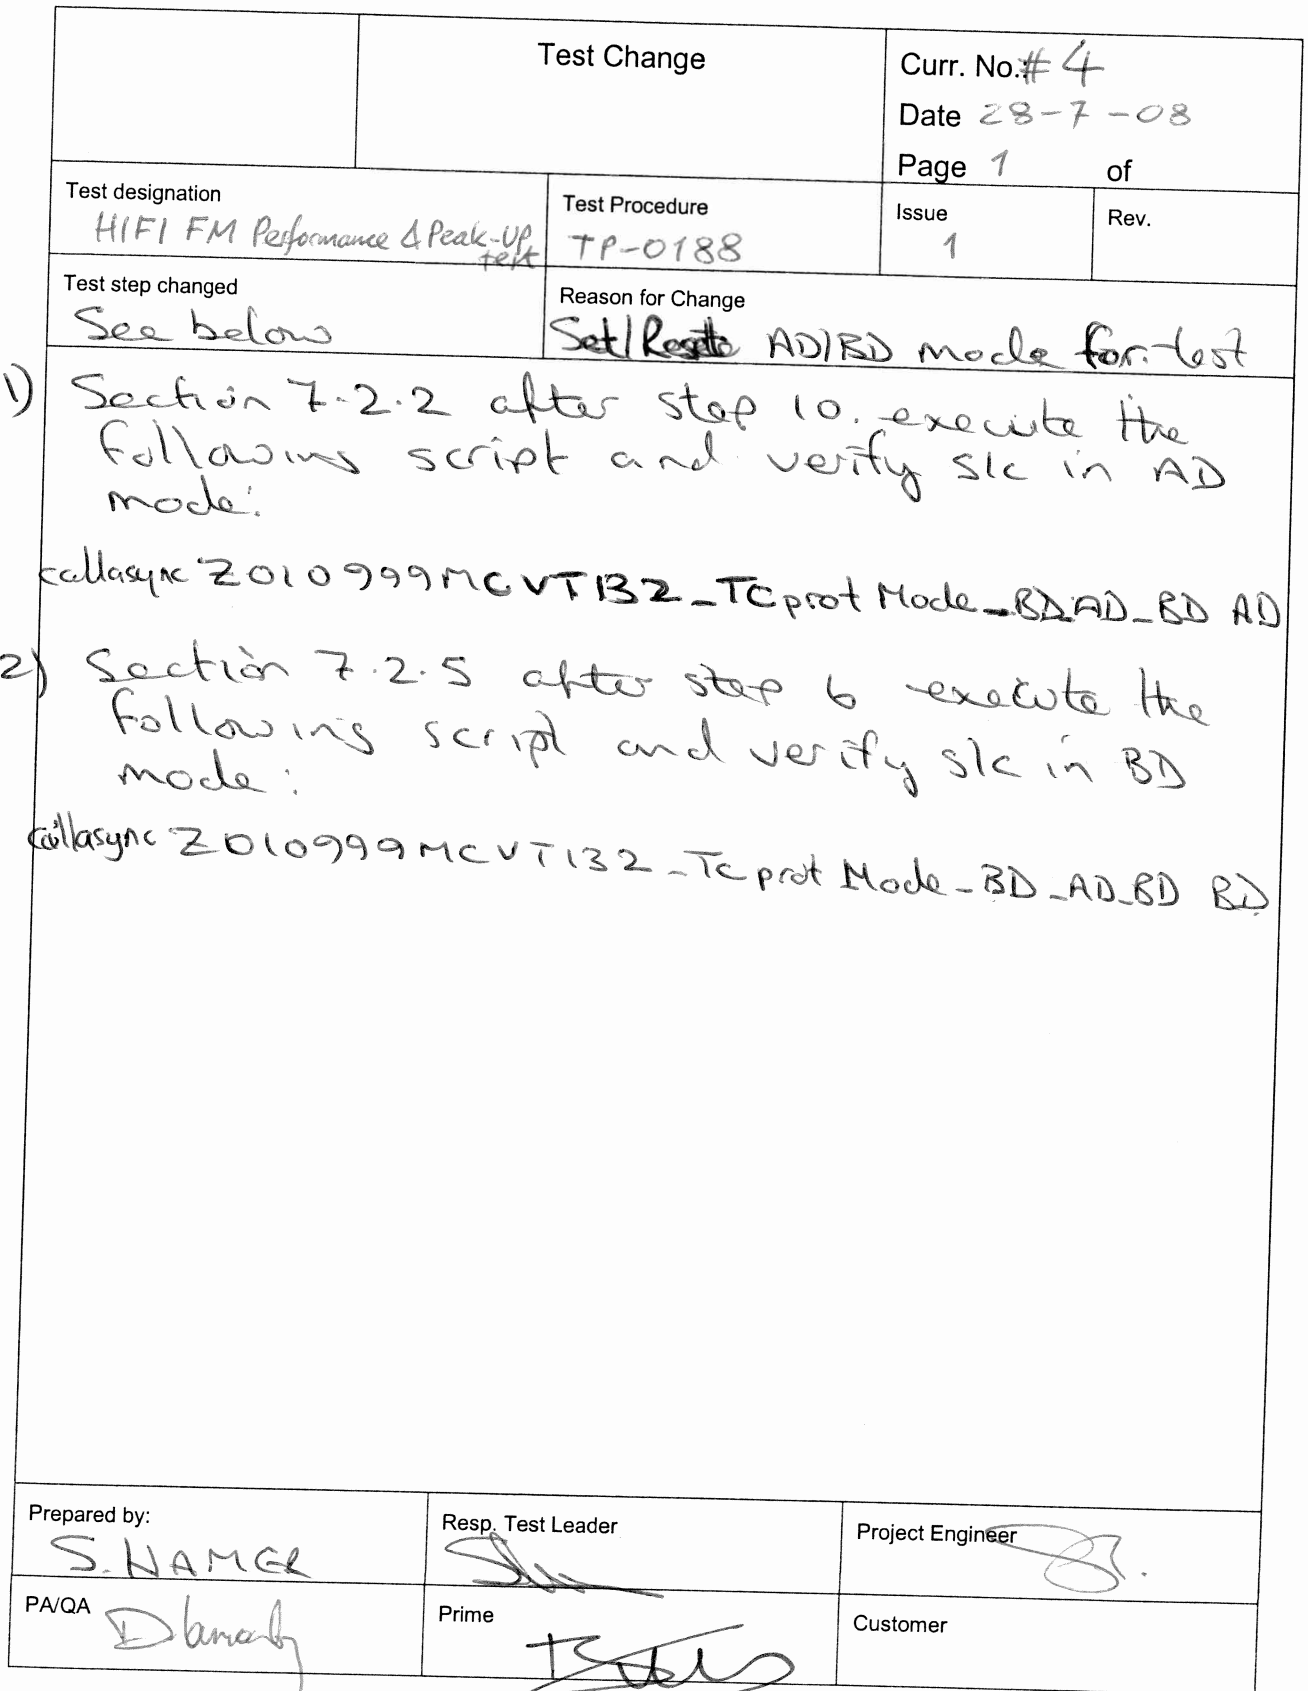 Test Change
Curr. No.: #4
Date 28-7-08
Page 1 of
Test designation
HIFI FM Performance & Peak-Up
test
Test Procedure
TP-0188
Issue
1
Rev.
Test step changed
See below
Reason for Change
Set/ AD/BD mode for test
1) Section 7.2.2 after step 10. execute the
following script and verify s/c in AD
mode:
callasync Z010999MCVT132_TCprotMode_BD_AD_BD AD
2) Section 7.2.5 after step 6 execute the
following script and verify s/c in BD
mode:
callasync Z010999MCVT132_TcprotMode_BD_AD_BD BD
Prepared by:
S. NAMER
Resp. Test Leader
Project Engineer
PA/QA
Prime
Customer